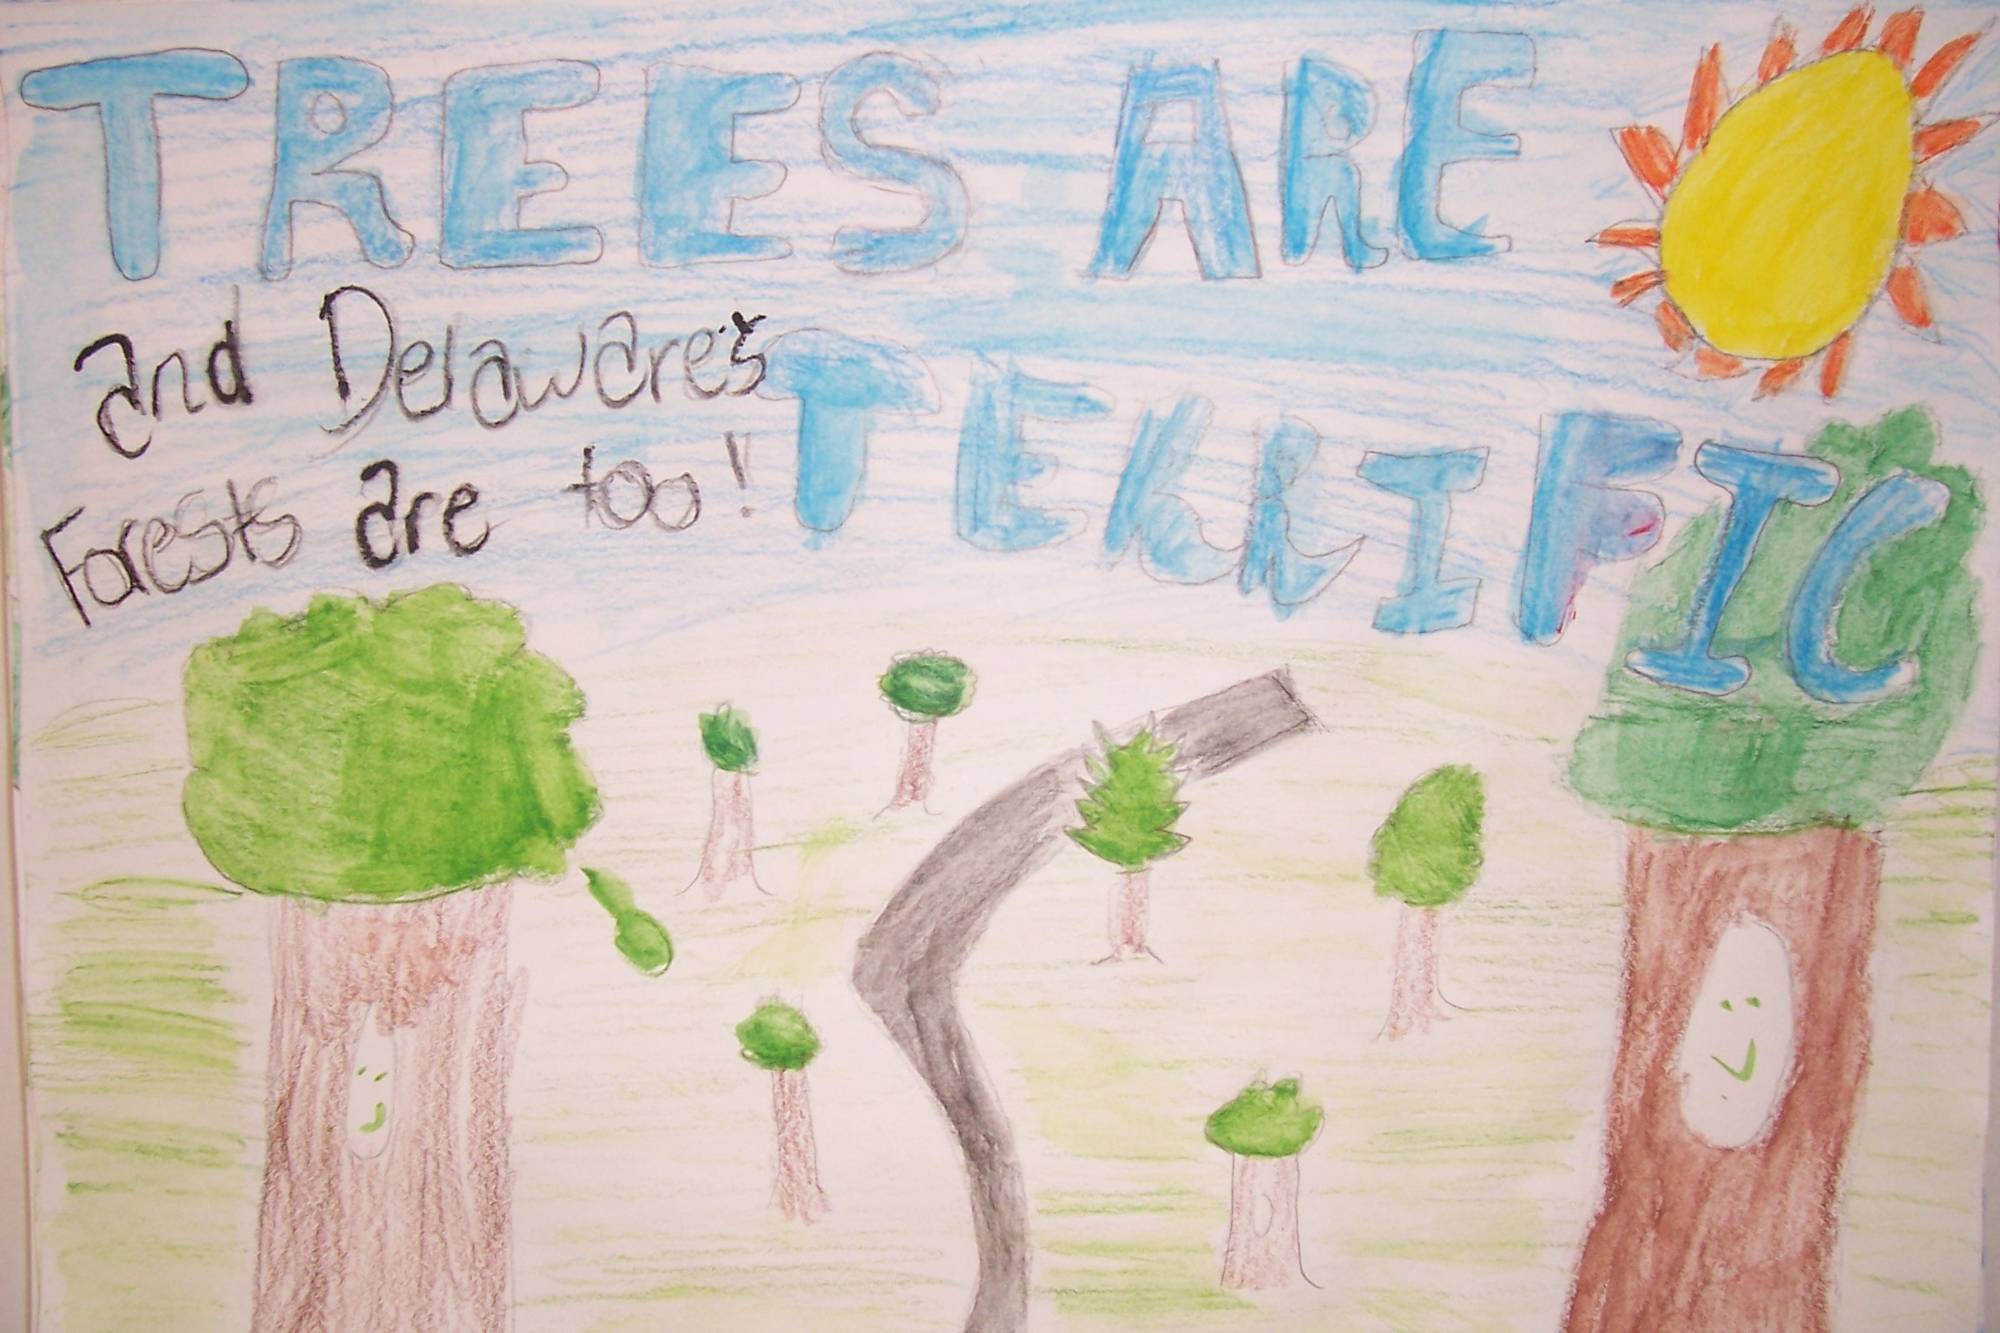 TREES ARE
TERRIFIC
and Delaware's
Forests are too!